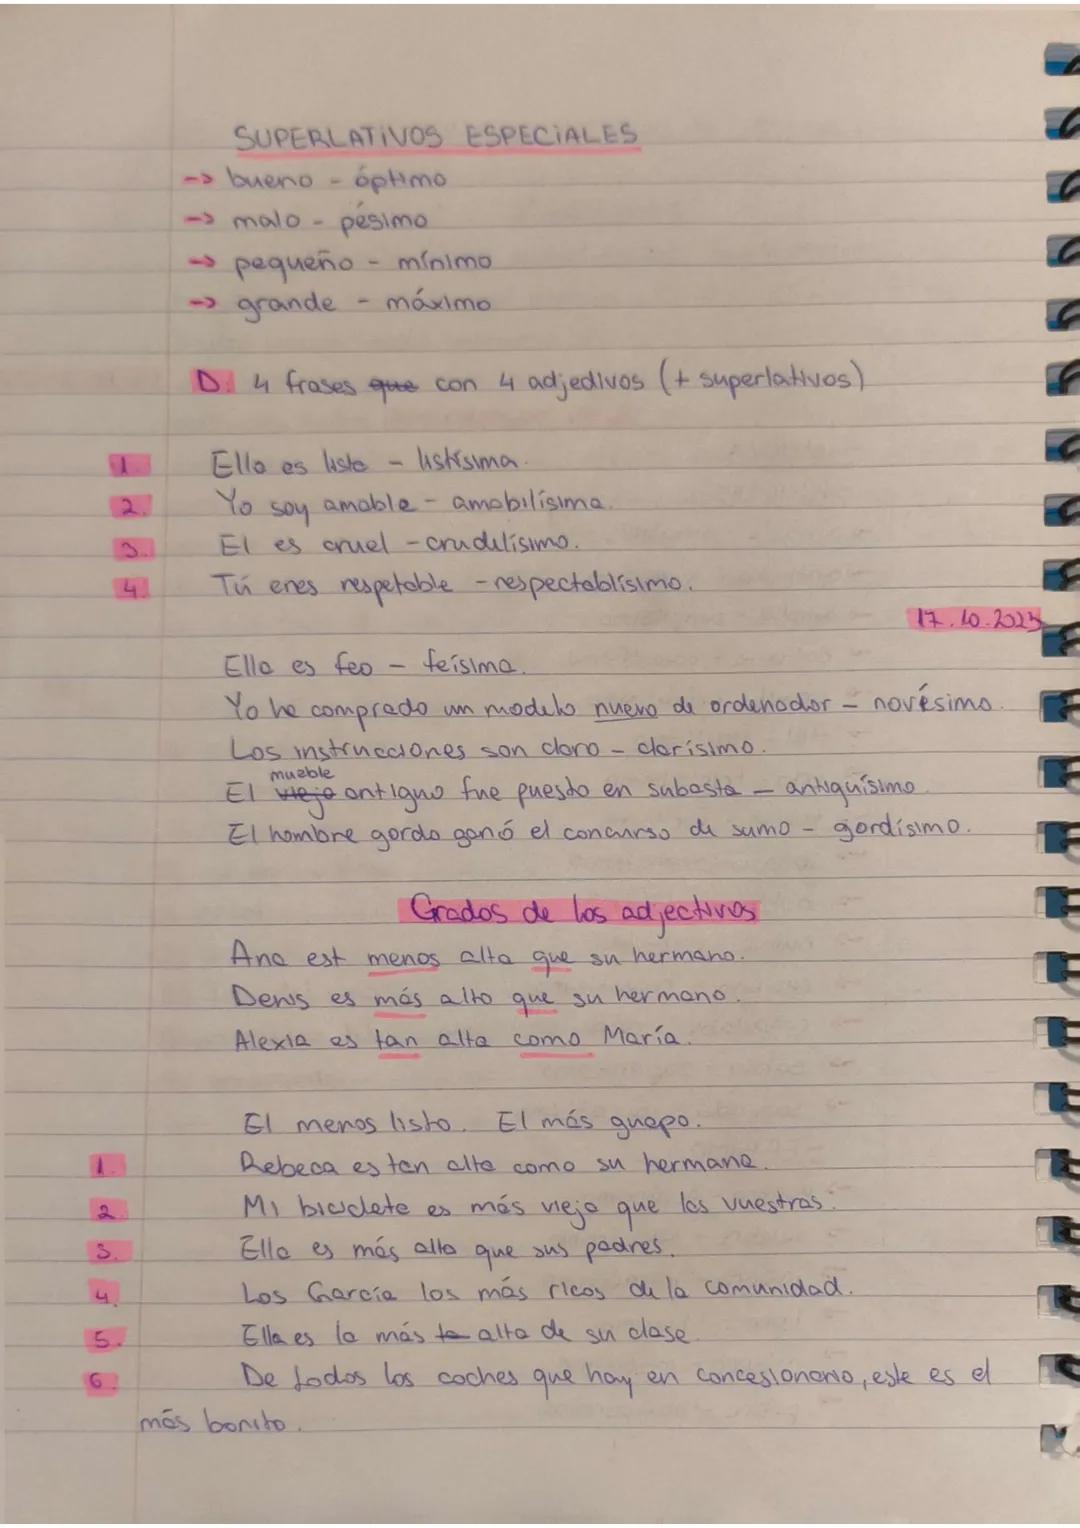 SUPERLATIVOS ESPECIALES
-> bueno - óptimo
-> malo - pésimo
-> pequeño - mínimo
-> grande - máximo
D. 4 frases que con 4 adjedivos (+ superlativos)
1. Ella es lista - listísima.
2. Yo soy amable - amabilísima.
3. El es cruel - crudelísimo.
4. Tú eres respetable - respectablísimo.
17.10.2023
Ella es feo - feísima.
Yo he comprado un modelo nuevo de ordenador - novésimo.
Los instrucciones son claro - clarísimo.
mueble
El viejo antiguo fue puesto en subasta - antiquísimo.
El hombre gordo ganó el concurso de sumo - gordísimo.
Grados de los adjectivos
Ana est menos alta que su hermano.
Denis es más alto que su hermano.
Alexia es tan alta como María.
El menos listo. El más guapo.
1. Rebeca es tan alta como su hermana.
2. Mi bicidete es más vieja que las vuestras.
3. Ella es más alta que sus padres.
4. Los García los más ricos de la comunidad.
5. Ella es la más ta alta de su clase
6. De todos los coches que hay en concesionario, este es el
más bonito.